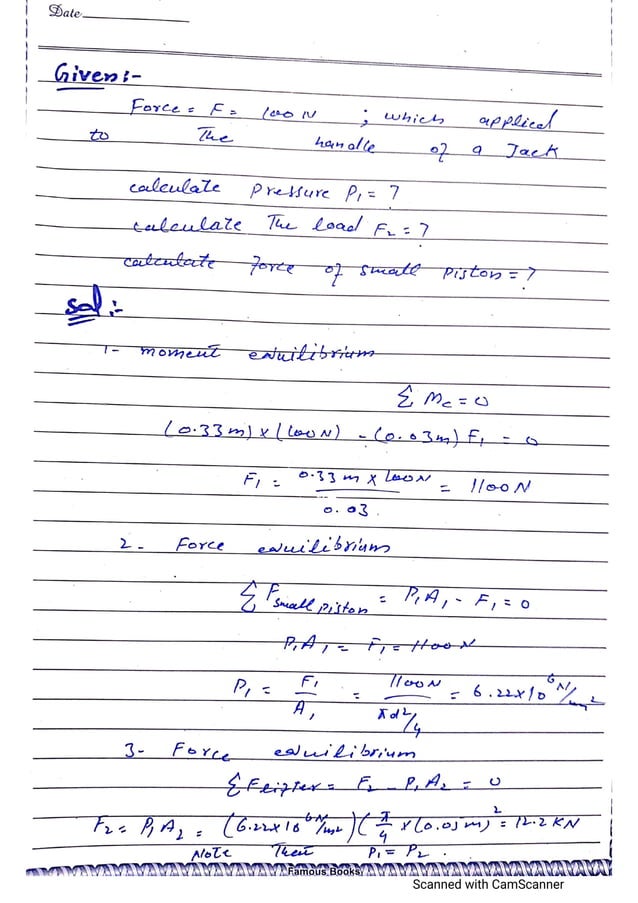 Date
Given:-
Force = F = 100 N ; which applied
to The handle of a Jack
calculate pressure P₁ = ?
calculate The load F₂ = ?
calculate force of small piston = ?
Sol:-
1- moment equilibrium
Σ Mc = 0
(0.33m) x (100N) - (0.03m) F₁ = 0
F₁ = 0.33 m x 100N / 0.03 = 1100 N
2- Force equilibrium
Σ F small piston = P₁A₁ - F₁ = 0
P₁A₁ = F₁ = 1100 N
P₁ = F₁ / A₁ = 1100 N / πd²/4 = 6.22x10⁶ N/m²
3- Force equilibrium
Σ F lifter = F₂ - P₁A₂ = 0
F₂ = P₁A₂ = (6.22x10⁶ N/m²) (π/4 x (0.05m)² = 12.2 KN
Note That P₁ = P₂.
Famous Books
Scanned with CamScanner